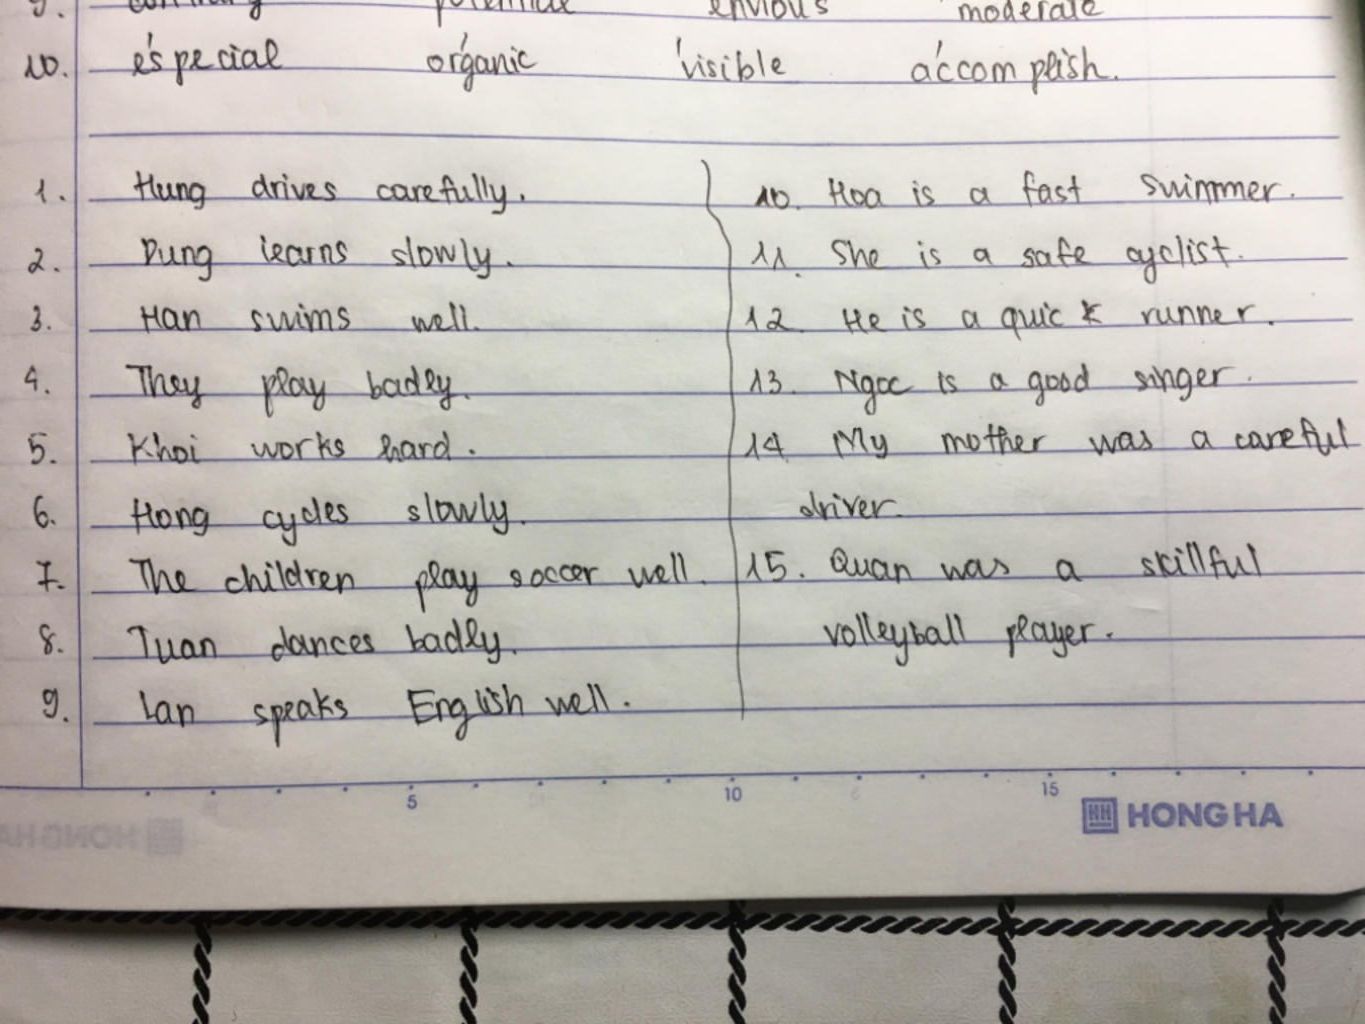 9. potential envious moderate
10. e'special o'rganic 'visible a'ccomplish.
1. Hung drives carefully.
2. Dung learns slowly.
3. Han swims well.
4. They play badly.
5. Khoi works hard.
6. Hong cycles slowly.
7. The children play soccer well.
8. Tuan dances badly.
9. Lan speaks English well.
10. Hoa is a fast swimmer.
11. She is a safe cyclist.
12. He is a quick runner.
13. Ngoc is a good singer.
14. My mother was a careful
driver.
15. Quan was a skillful
volleyball player.
5 10 15
HH HONG HA